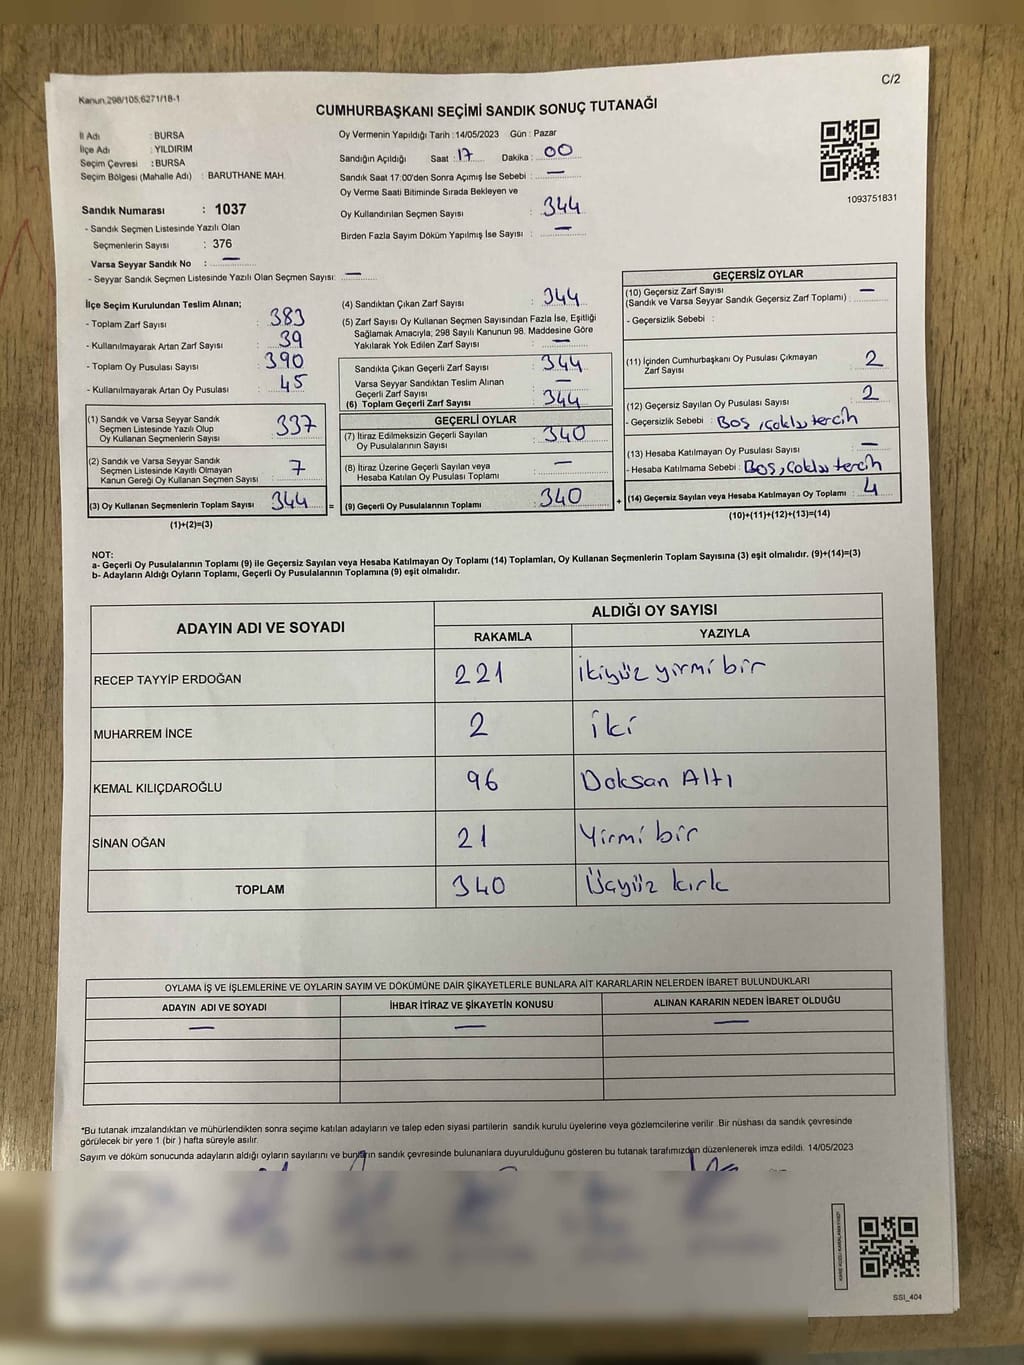 C/2
Kanun.298/105,6271/18-1
CUMHURBAŞKANI SEÇİMİ SANDIK SONUÇ TUTANAĞI
İl Adı : BURSA
İlçe Adı : YILDIRIM
Seçim Çevresi : BURSA
Seçim Bölgesi (Mahalle Adı) : BARUTHANE MAH.
Sandık Numarası : 1037
- Sandık Seçmen Listesinde Yazılı Olan
Seçmenlerin Sayısı : 376
Varsa Seyyar Sandık No : —
- Seyyar Sandık Seçmen Listesinde Yazılı Olan Seçmen Sayısı: —
Oy Vermenin Yapıldığı Tarih : 14/05/2023 Gün : Pazar
Sandığın Açıldığı Saat : 17 Dakika : 00
Sandık Saat 17:00'den Sonra Açımış İse Sebebi : —
Oy Verme Saati Bitiminde Sırada Bekleyen ve
Oy Kullandırılan Seçmen Sayısı : 344
Birden Fazla Sayım Döküm Yapılmış İse Sayısı : —
1093751831
İlçe Seçim Kurulundan Teslim Alınan;
- Toplam Zarf Sayısı : 383
- Kullanılmayarak Artan Zarf Sayısı : 39
- Toplam Oy Pusulası Sayısı : 390
- Kullanılmayarak Artan Oy Pusulası : 45
(1) Sandık ve Varsa Seyyar Sandık
Seçmen Listesinde Yazılı Olup
Oy Kullanan Seçmenlerin Sayısı : 337
(2) Sandık ve Varsa Seyyar Sandık
Seçmen Listesinde Kayıtlı Olmayan
Kanun Gereği Oy Kullanan Seçmen Sayısı : 7
(3) Oy Kullanan Seçmenlerin Toplam Sayısı : 344 =
(1)+(2)=(3)
(4) Sandıktan Çıkan Zarf Sayısı : 344
(5) Zarf Sayısı Oy Kullanan Seçmen Sayısından Fazla İse, Eşitliği
Sağlamak Amacıyla; 298 Sayılı Kanunun 98. Maddesine Göre
Yakılarak Yok Edilen Zarf Sayısı : —
Sandıkta Çıkan Geçerli Zarf Sayısı : 344
Varsa Seyyar Sandıktan Teslim Alınan
Geçerli Zarf Sayısı : —
(6) Toplam Geçerli Zarf Sayısı : 344
GEÇERLİ OYLAR
(7) İtiraz Edilmeksizin Geçerli Sayılan
Oy Pusulalarının Sayısı : 340
(8) İtiraz Üzerine Geçerli Sayılan veya
Hesaba Katılan Oy Pusulası Toplamı : —
(9) Geçerli Oy Pusulalarının Toplamı : 340 +
GEÇERSİZ OYLAR
(10) Geçersiz Zarf Sayısı
(Sandık ve Varsa Seyyar Sandık Geçersiz Zarf Toplamı) : —
- Geçersizlik Sebebi :
(11) İçinden Cumhurbaşkanı Oy Pusulası Çıkmayan
Zarf Sayısı : 2
(12) Geçersiz Sayılan Oy Pusulası Sayısı : 2
- Geçersizlik Sebebi : Boş, çoklu tercih
(13) Hesaba Katılmayan Oy Pusulası Sayısı : —
- Hesaba Katılmama Sebebi : Boş, çoklu tercih
(14) Geçersiz Sayılan veya Hesaba Katılmayan Oy Toplamı : 4
(10)+(11)+(12)+(13)=(14)
NOT:
a- Geçerli Oy Pusulalarının Toplamı (9) ile Geçersiz Sayılan veya Hesaba Katılmayan Oy Toplamı (14) Toplamları, Oy Kullanan Seçmenlerin Toplam Sayısına (3) eşit olmalıdır. (9)+(14)=(3)
b- Adayların Aldığı Oyların Toplamı, Geçerli Oy Pusulalarının Toplamına (9) eşit olmalıdır.
ADAYIN ADI VE SOYADI
ALDIĞI OY SAYISI
RAKAMLA YAZIYLA
RECEP TAYYİP ERDOĞAN 221 ikiyüz yirmi bir
MUHARREM İNCE 2 iki
KEMAL KILIÇDAROĞLU 96 Doksan Altı
SİNAN OĞAN 21 Yirmi bir
TOPLAM 340 Üçyüz kırk
OYLAMA İŞ VE İŞLEMLERİNE VE OYLARIN SAYIM VE DÖKÜMÜNE DAİR ŞİKAYETLERLE BUNLARA AİT KARARLARIN NELERDEN İBARET BULUNDUKLARI
ADAYIN ADI VE SOYADI İHBAR İTİRAZ VE ŞİKAYETİN KONUSU ALINAN KARARIN NEDEN İBARET OLDUĞU
— — —
*Bu tutanak imzalandıktan ve mühürlendikten sonra seçime katılan adayların ve talep eden siyasi partilerin sandık kurulu üyelerine veya gözlemcilerine verilir .Bir nüshası da sandık çevresinde
görülecek bir yere 1 (bir ) hafta süreyle asılır.
Sayım ve döküm sonucunda adayların aldığı oyların sayılarını ve bunların sandık çevresinde bulunanlara duyurulduğunu gösteren bu tutanak tarafımızdan düzenlenerek imza edildi. 14/05/2023
SSI_404